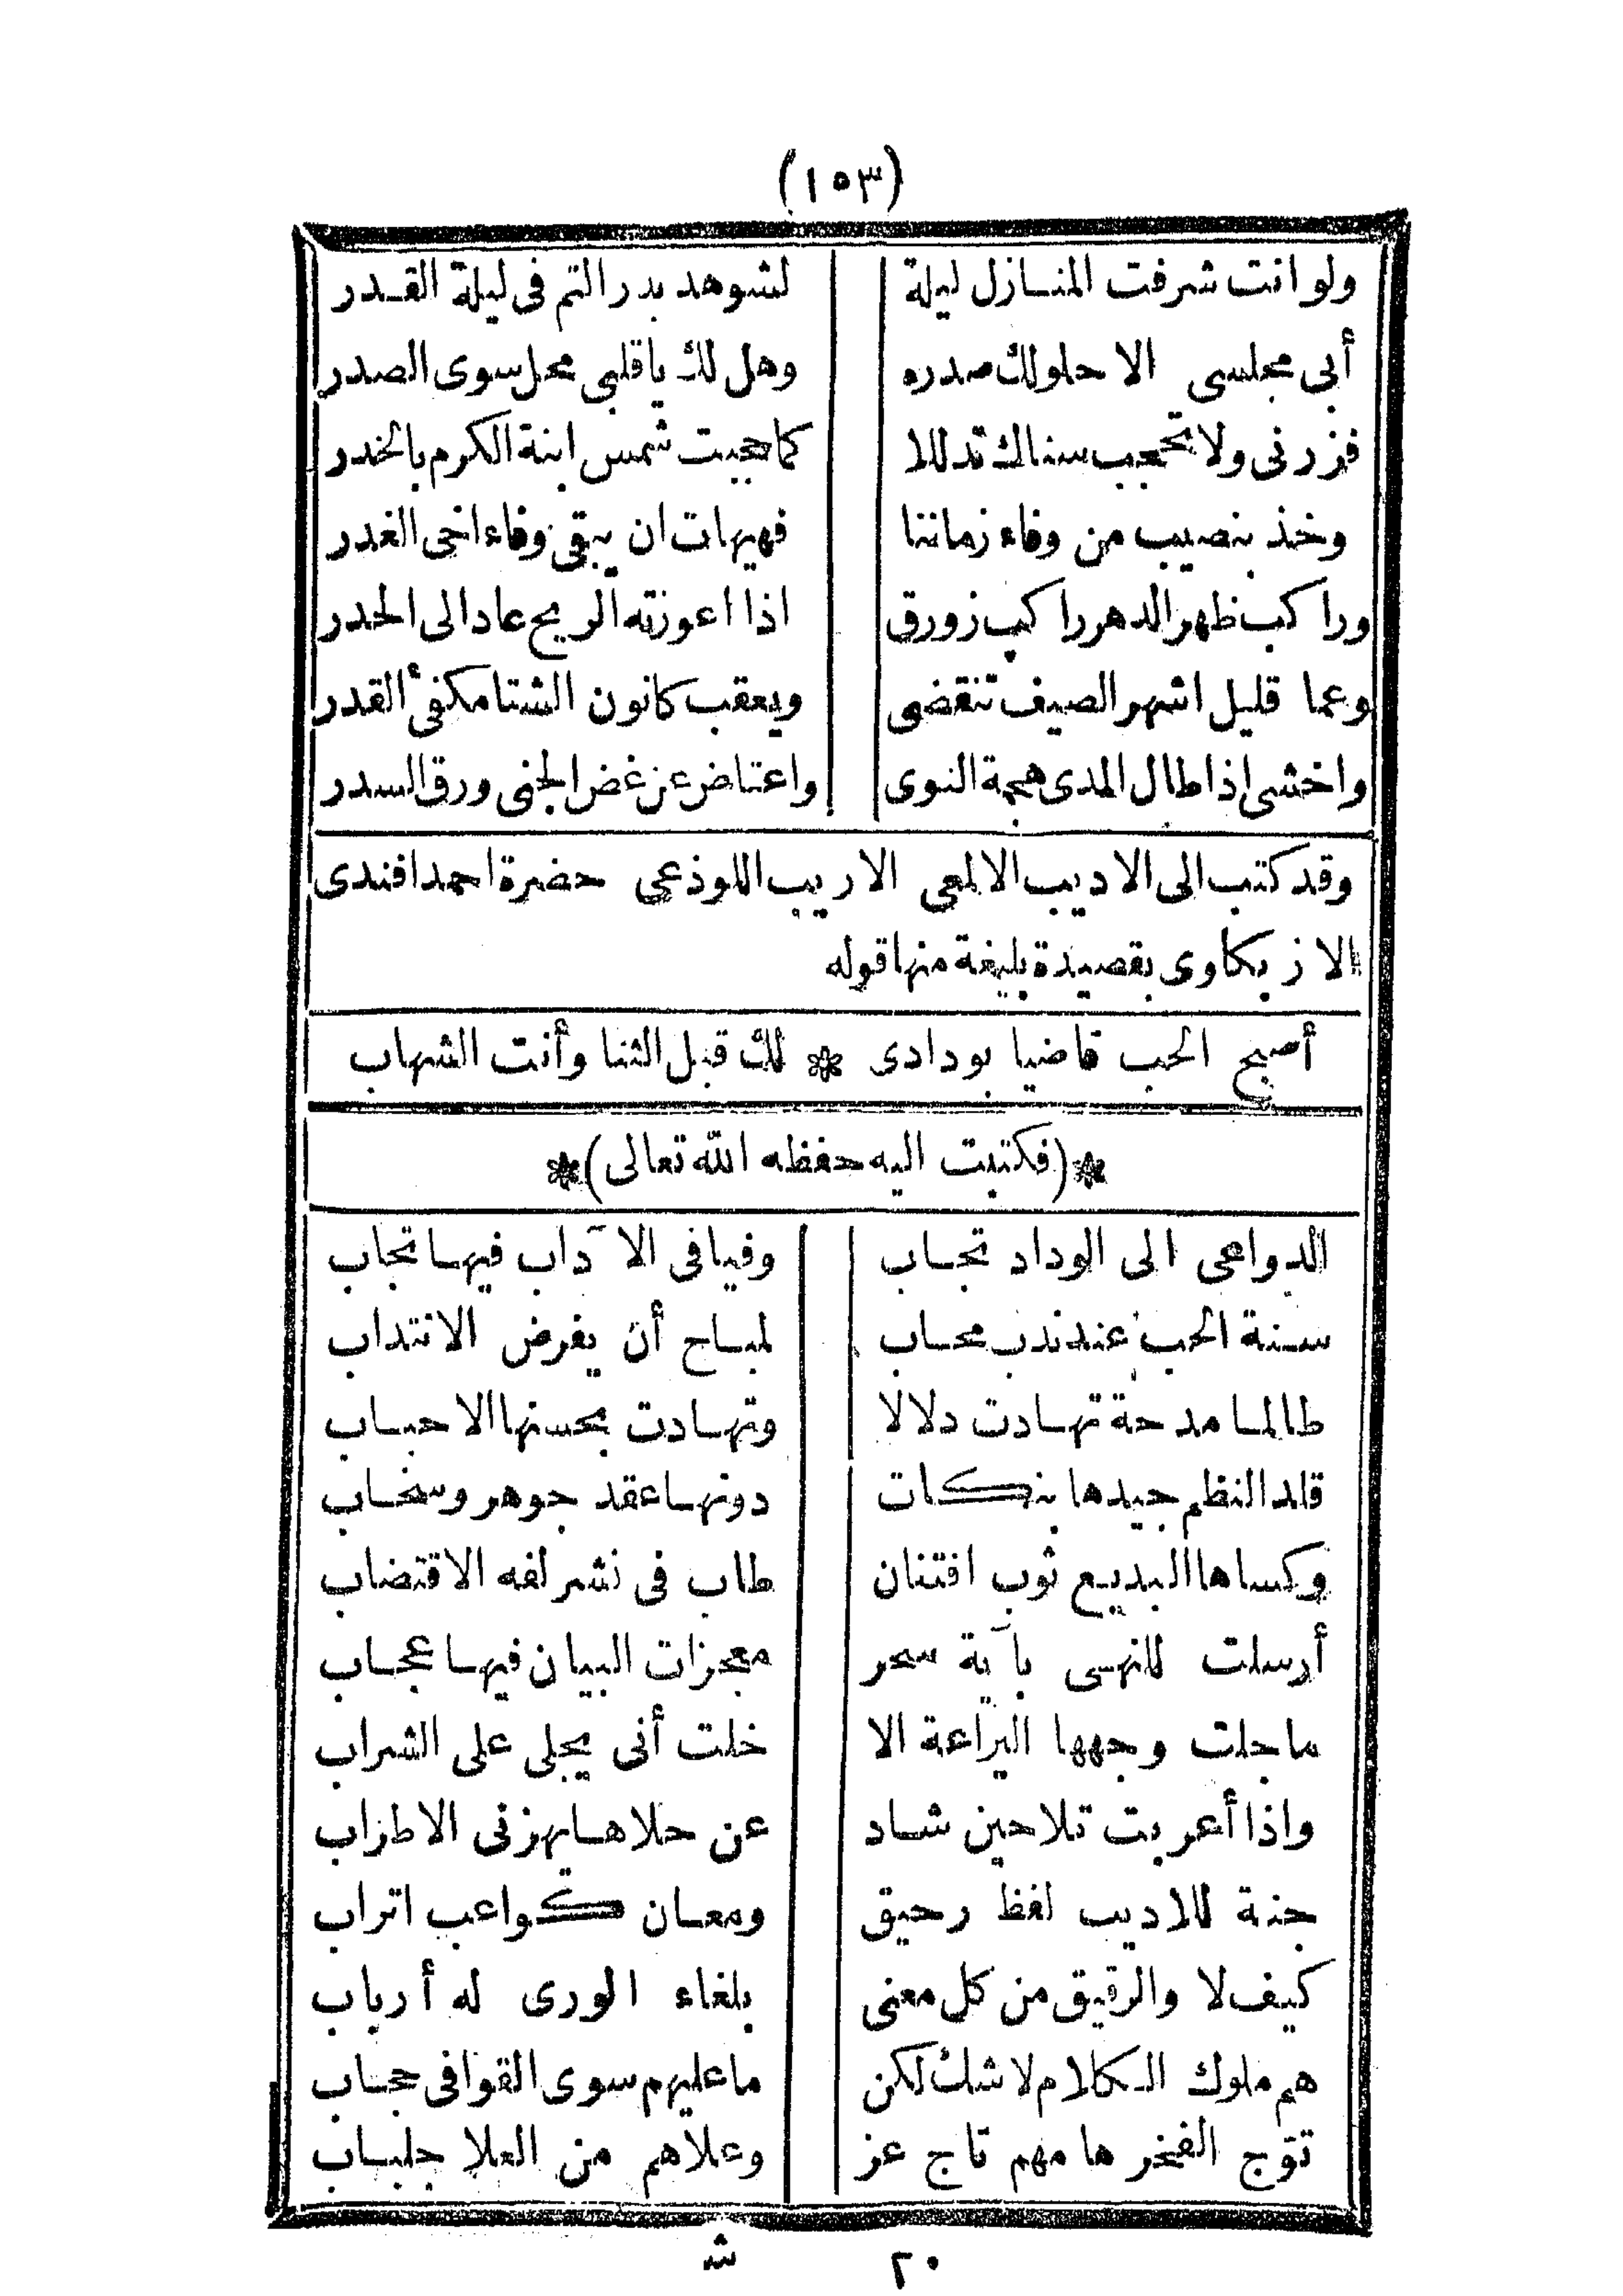 (١٥٣)
ولو انت شرفت المنازل ليلة لشوهد بدر التم فى ليلة القدر
أبى مجلسى الا حلولك صدره وهل لك يا قلبى محل سوى الصدر
فزرنى ولا تحجب سناك تدللا كما حجبت شمس ابنة الكرم بالخدر
وخذ بنصيب من وفاء زماننا فهيهات ان يبقى وفاء اخى الغدر
وراكب ظهر الدهر راكب زورق اذا اعوزته الريح عاد الى الحدر
وعما قليل اشهر الصيف تنقضى ويعقب كانون الشتا مكفئ القدر
واخشى اذا طال المدى هجمة النوى واعتاض عن غض الجنى ورق السدر
وقد كتب الى الاديب الالمعى الاريب اللوذعى حضرة احمد افندى
الازبكاوى بقصيدة بليغة منها قوله
أصبح الحب قاضيا بودادى * لك قبل الثنا وأنت الشهاب
*(فكتبت اليه حفظه الله تعالى)*
الدواعى الى الوداد تجاب وفيافى الآداب فيها تجاب
سنة الحب عند ندب محاب لمباح أن يفرض الانتداب
طالما مدحة تهادت دلالا وتهادت بحسنها الاحباب
قلد النظم جيدها بنكات دونها عقد جوهر وسخاب
وكساها البديع ثوب افتنان طاب فى نشر لفه الاقتضاب
أرسلت للنهى بآية سحر معجزات البيان فيها عجاب
ما جلت وجهها اليراعة الا خلت أنى يجلى على الشراب
واذا أعربت تلاحين شاد عن حلاها يهزنى الاطراب
جنة للاديب لفظ رحيق ومعان كواعب اتراب
كيف لا والرقيق من كل معنى بلغاء الورى له أرباب
هم ملوك الكلام لا شك لكن ما عليهم سوى القوافى حجاب
توّج الفخر هامهم تاج عز وعلاهم من العلا جلباب
٢٠ ش